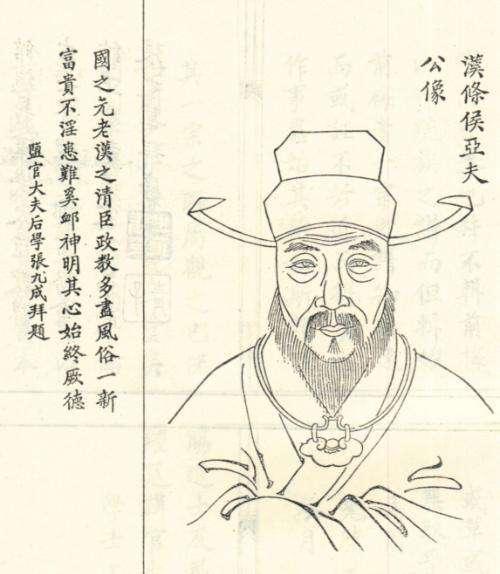 漢條侯亞夫
公像
國之元老漢之清臣政教多盡風俗一新
富貴不淫患難奚䘏神明其心始終厥德
鹽官大夫后學張九成拜題